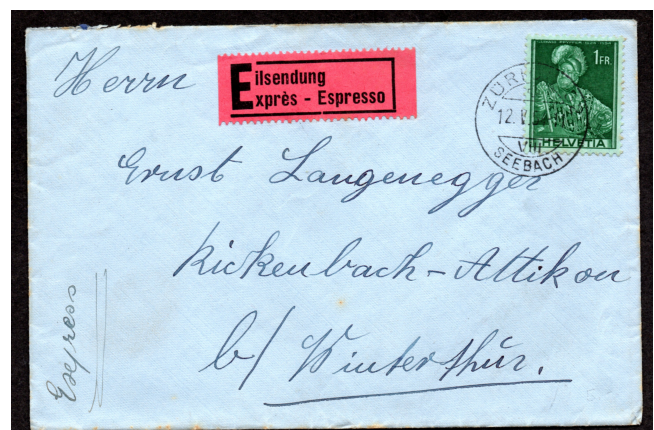 Herrn
Eilsendung
Exprès - Espresso
1FR
ZÜRICH
12.
VIII
SEEBACH
HELVETIA
Ernst Langenegger
Rickenbach-Attikon
b/ Winterthur.
Express